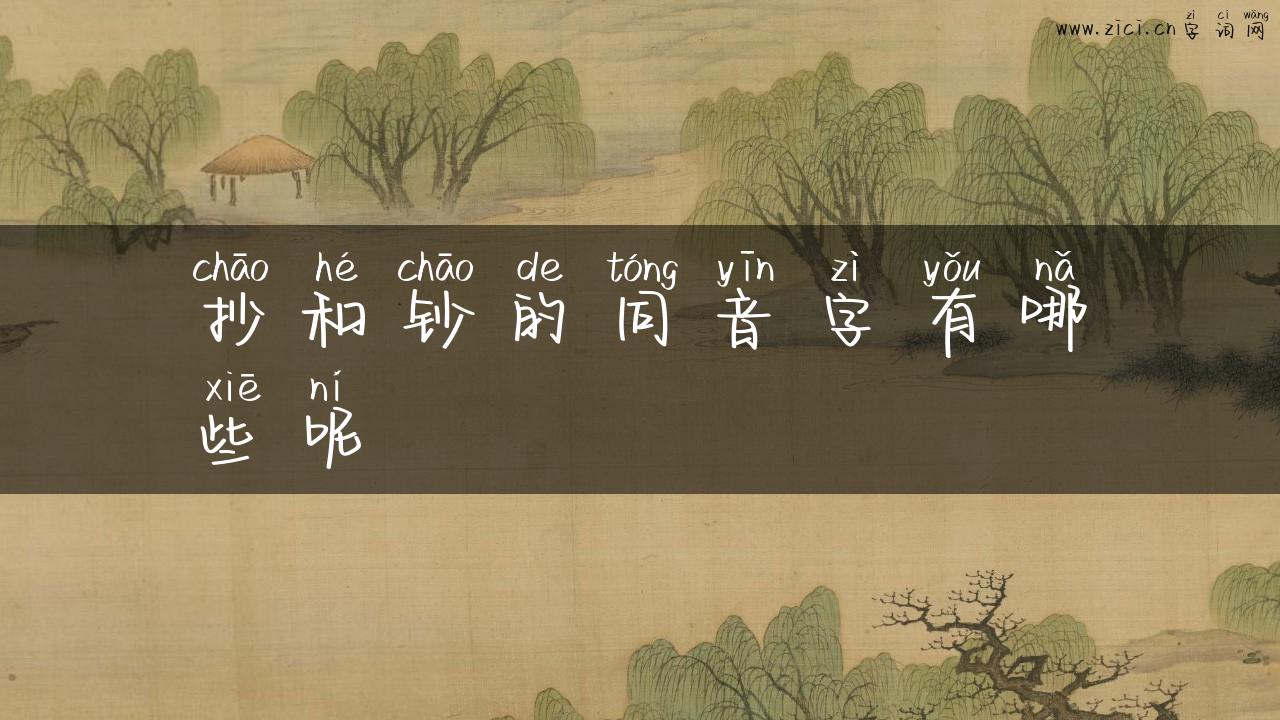 zì cí wǎng
www.zici.cn 字词网
chāo hé chāo de tóng yīn zì yǒu nǎ
抄和钞的同音字有哪
xiē ní
些呢